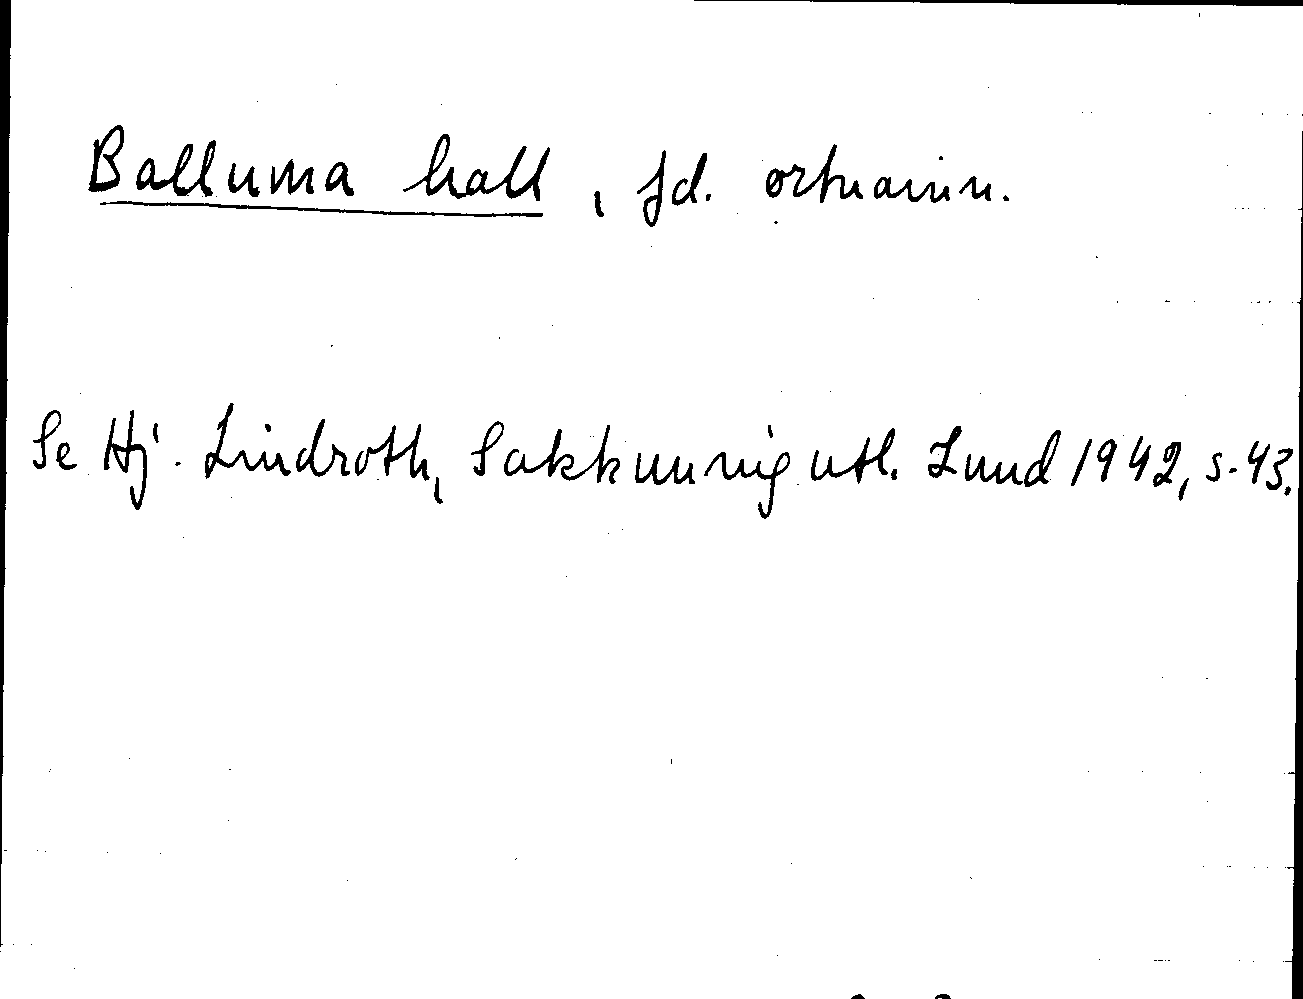 Balluma hall, fd. ortnamn.
Se Hj. Lindroth, Sakkunnig utl. Lund 1942, s. 43.